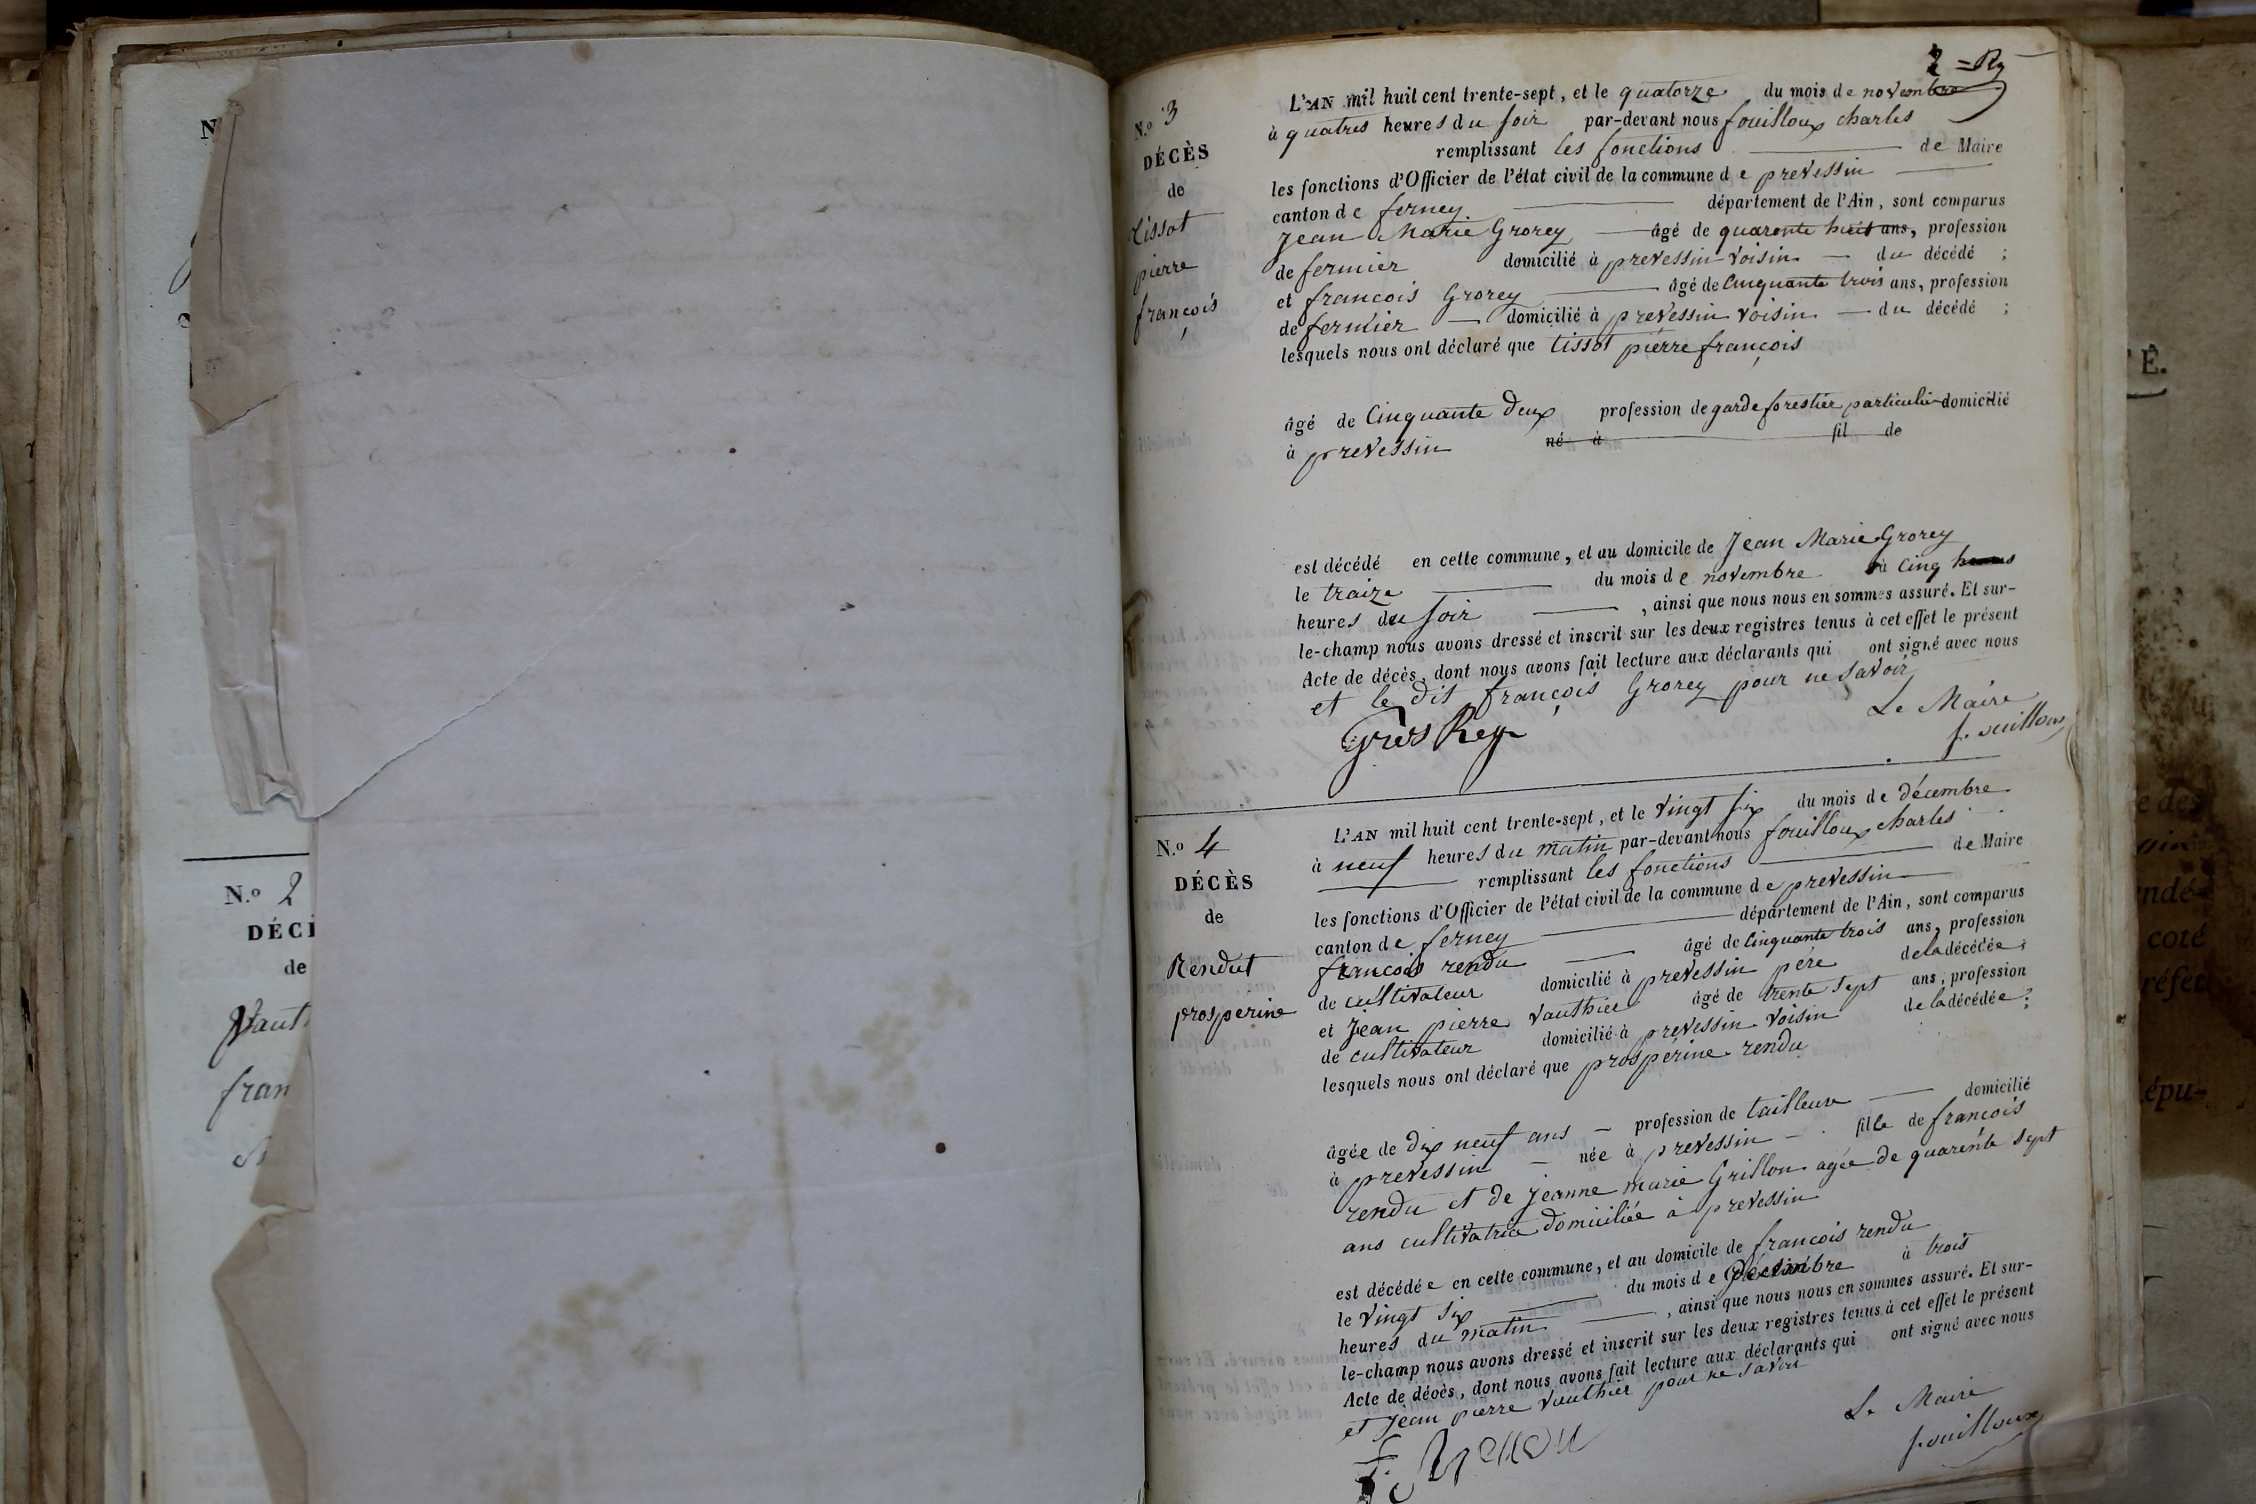 N.o 2
DÉCÈ
de
Vaut
fran
2 = Ry
N.o 3
DÉCÈS
de
tissot
pierre
françois
L'AN mil huit cent trente-sept, et le quatorze du mois de novembre
à quatres heures du soir par-devant nous fouilloux charles
remplissant les fonctions de Maire
les fonctions d'Officier de l'état civil de la commune de prevessin
canton de ferney département de l'Ain, sont comparus
Jean Marie Grorey âgé de quarente huit ans, profession
de fermier domicilié à prevessin voisin du décédé ;
et francois Grorey âgé de Cinquante trois ans, profession
de fermier domicilié à prevessin voisin du décédé ;
lesquels nous ont déclaré que tissot pierre françois
âgé de Cinquante deux profession de garde forestier particulier domicilié
à prevessin né à fil de
est décédé en cette commune, et au domicile de Jean Marie Grorey
le traize du mois de novembre à Cinq heures
heures du soir , ainsi que nous nous en sommes assuré. Et sur-
le-champ nous avons dressé et inscrit sur les deux registres tenus à cet effet le présent
Acte de décès, dont nous avons fait lecture aux déclarants qui ont signé avec nous
et le dit françois Grorey pour ne savoir
Le Maire
Gros Rey
fouilloux
N.o 4
DÉCÈS
de
Rendut
prosperine
L'AN mil huit cent trente-sept, et le vingt six du mois de décembre
à neuf heures du matin par-devant nous fouilloux charles
remplissant les fonctions de Maire
les fonctions d'Officier de l'état civil de la commune de prevessin
canton de ferney département de l'Ain, sont comparus
francois rendu âgé de Cinquante trois ans, profession
de cultivateur domicilié à prevessin père de la décédée ;
et Jean pierre Vauthier âgé de trente sept ans, profession
de cultivateur domicilié à prevessin voisin de la décédée ;
lesquels nous ont déclaré que prospérine rendu
âgée de dix neuf ans profession de tailleuse domicilié
à prevessin née à prevessin fille de françois
rendu et de jeanne marie Grillon agée de quarente sept
ans cultivatrice domiciliée à prevessin
est décédée en cette commune, et au domicile de francois rendu
le vingt six du mois de Décembre à trois
heures du matin , ainsi que nous nous en sommes assuré. Et sur-
le-champ nous avons dressé et inscrit sur les deux registres tenus à cet effet le présent
Acte de décès, dont nous avons fait lecture aux déclarants qui ont signé avec nous
et Jean pierre Vauthier pour ne savoir
Le Maire
f. Rendu
fouilloux